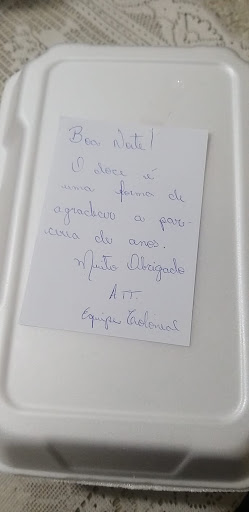 Boa Noite!
O doce é
uma forma de
agradecer a par-
ceria de anos.
Muito Obrigado
ATT.
Equipe Colonial